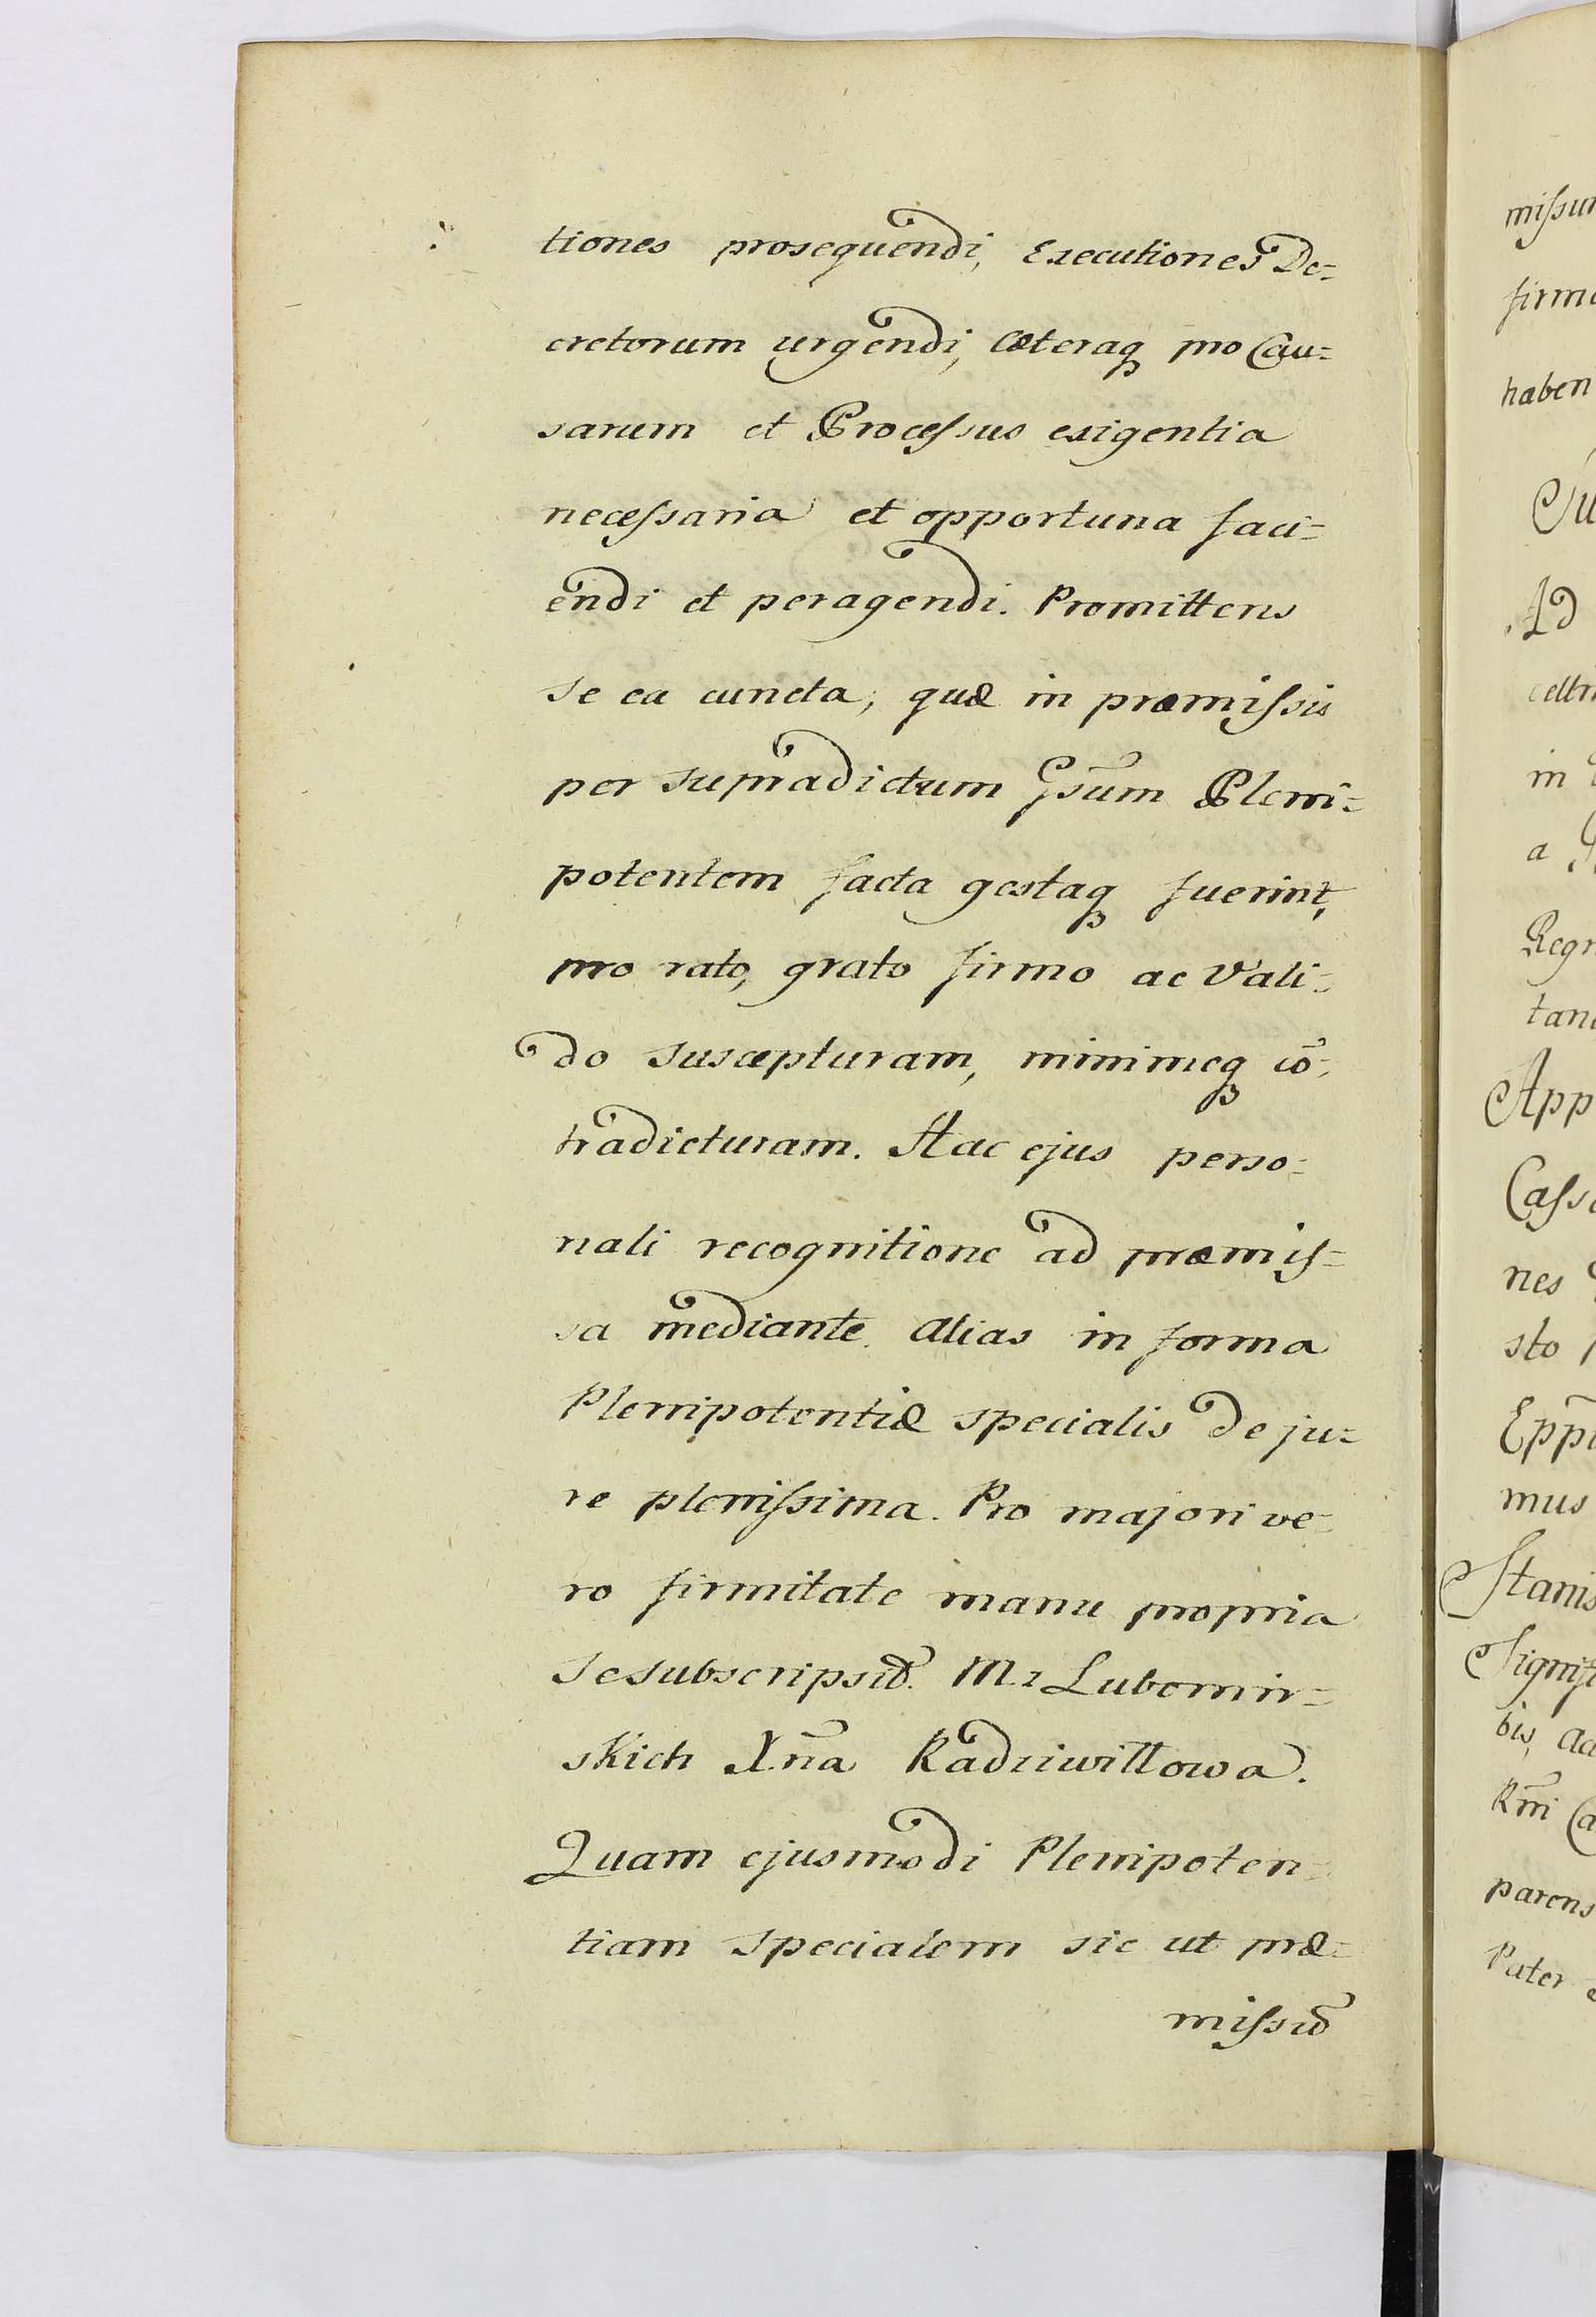 tiones prosequendi, Executiones De=
cretorum urgendi, Cæteraq₃ pro Cau=
sarum et Processus exigentia
necessaria et opportuna faci=
endi et peragendi. Promittens
se ea cuncta, quæ in præmissis
per supradictum Gsūm Pleni=
potentem facta gestaq₃ fuerint,
pro rato, grato firmo ac Vali=
do suscepturam, minimeq₃ cō=
tradicturam. Hac ejus perso=
nali recognitione ad præmis=
sa mediante. alias in forma
Plenipotentiæ specialis de ju=
re plenissima. Pro majori ve=
ro firmitate manu propria
se subscripsit. M. z Lubomir=
skich X.nā Radziwiłłowa.
Quam ejusmodi Plenipoten=
tiam specialem sic ut præ=
missū
missu
firm
haben
Ju
Ad
celtr
in
a
Regn
tan
App
Cass
nes
sto
Epp̄
mus
Stanis
Signif
bis, ad
Rm̄i Ca
parens
Pater